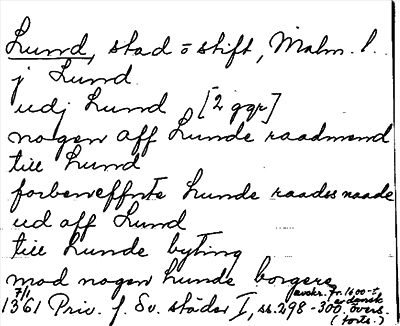 Lund, stad o stift, Malm. l.
j Lund
udj Lund [2 ggr]
nogen aff Lunde raadmend
till Lund
forbeneffnte Lunde raads naade
ud aff Lund
till Lunde byting
mod nogen Lunde borgere
7/1 1361 Priv. f. Sv. städer I, ss. 298-300. avskr. fr. 1600-t. av dansk övers. (forts.)